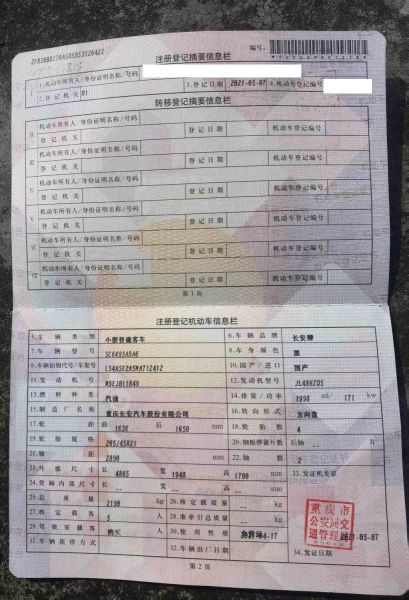 注册登记摘要信息栏
编号:
1.机动车所有人/身份证明名称/号码
2.登记机关 3.登记日期 2021-05-07 4.机动车登记编号
转移登记摘要信息栏
Ⅱ 机动车所有人/身份证明名称/号码
登记机关 登记日期 机动车登记编号
Ⅲ 机动车所有人/身份证明名称/号码
登记机关 登记日期 机动车登记编号
Ⅳ 机动车所有人/身份证明名称/号码
登记机关 登记日期 机动车登记编号
Ⅴ 机动车所有人/身份证明名称/号码
登记机关 登记日期 机动车登记编号
Ⅵ 机动车所有人/身份证明名称/号码
登记机关 登记日期 机动车登记编号
Ⅶ 机动车所有人/身份证明名称/号码
登记机关 登记日期 机动车登记编号
第1页
注册登记机动车信息栏
5.车辆类型 小型普通客车 6.车辆品牌 长安牌
7.车辆型号 SC6493ABA6 8.车身颜色 黑
9.车辆识别代号/车架号 10.国产/进口 国产
11.发动机号 12.发动机型号 JL486ZQ5
13.燃料种类 汽油 14.排量/功率 1998 ml/ 171 kw
15.制造厂名称 重庆长安汽车股份有限公司 16.转向形式 方向盘
17.轮距 前 1636 后 1650 mm 18.轮胎数 4
19.轮胎规格 265/45R21 20.钢板弹簧片数 后轴 -- 片
21.轴距 2890 mm 22.轴数 2
23.外廓尺寸 长 4865 宽 1948 高 1700 mm 33.发证机关章
24.货厢内部尺寸 长 -- 宽 -- 高 -- mm
25.总质量 2190 kg 26.核定载质量 -- kg
27.核定载客 5 人 28.准牵引总质量 -- kg
29.驾驶室载客 -- 人 30.使用性质
31.车辆获得方式 购买 32.车辆出厂日期 34.发证日期 2021-05-07
重庆市
公安局交
通管理局
第2页